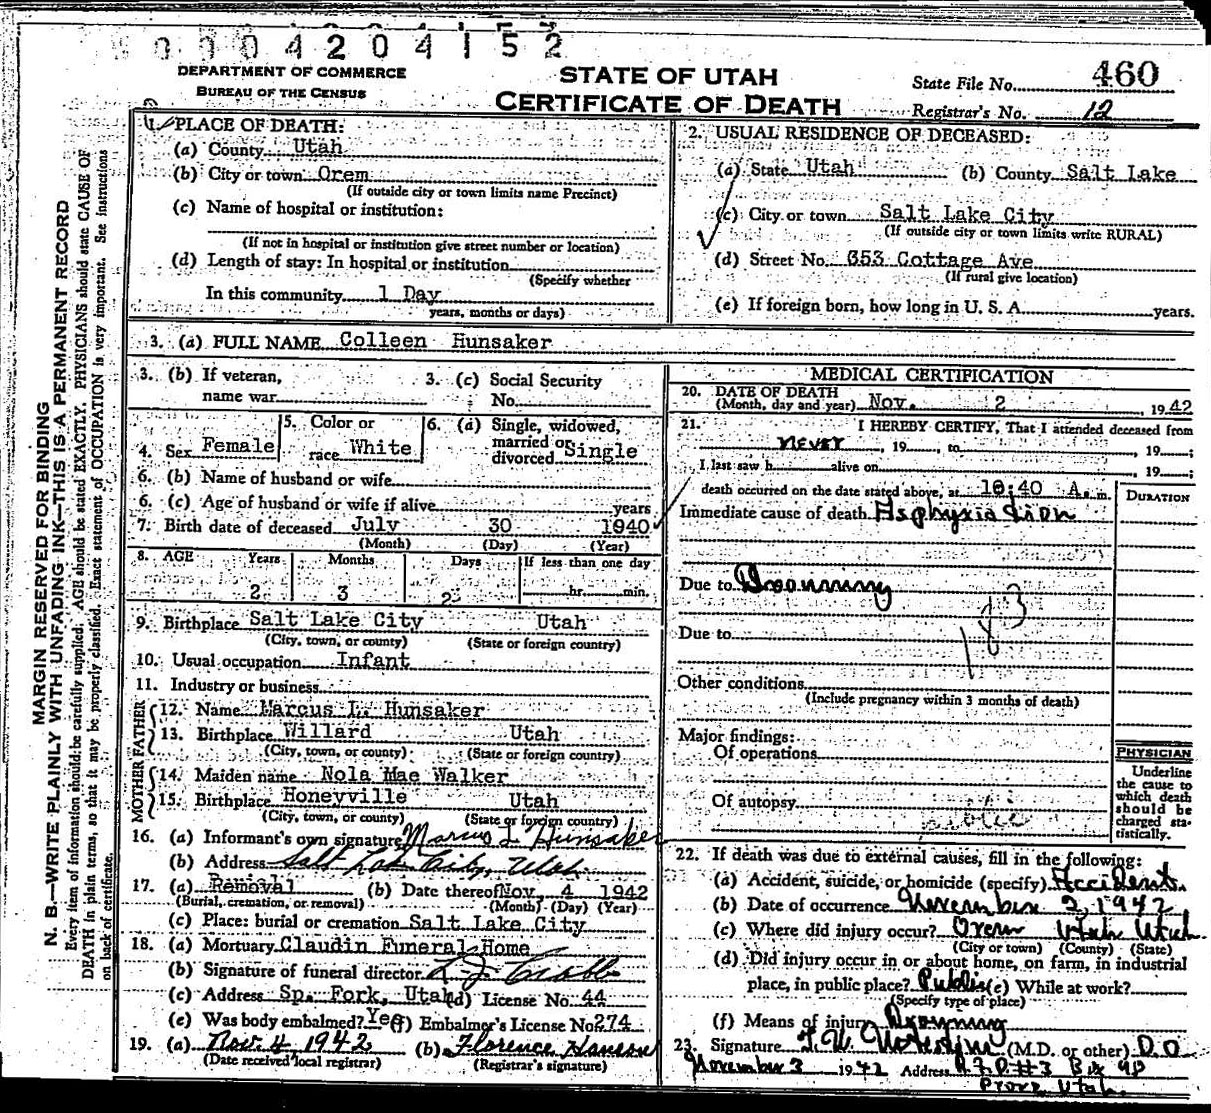 0004204152
DEPARTMENT OF COMMERCE
BUREAU OF THE CENSUS
STATE OF UTAH
CERTIFICATE OF DEATH
State File No. 460
Registrar's No. 12
MARGIN RESERVED FOR BINDING
N. B.—WRITE PLAINLY WITH UNFADING INK—THIS IS A PERMANENT RECORD
Every item of information should be carefully supplied. AGE should be stated EXACTLY. PHYSICIANS should state CAUSE OF
DEATH in plain terms, so that it may be properly classified. Exact statement of OCCUPATION is very important. See instructions
on back of certificate.
1. PLACE OF DEATH:
(a) County Utah
(b) City or town Orem
(If outside city or town limits name Precinct)
(c) Name of hospital or institution:
(If not in hospital or institution give street number or location)
(d) Length of stay: In hospital or institution
(Specify whether
In this community 1 Day
years, months or days)
2. USUAL RESIDENCE OF DECEASED:
(a) State Utah (b) County Salt Lake
(c) City or town Salt Lake City
(If outside city or town limits write RURAL)
(d) Street No. 653 Cottage Ave
(If rural give location)
(e) If foreign born, how long in U. S. A. years.
3. (a) FULL NAME Colleen Hunsaker
3. (b) If veteran, name war
3. (c) Social Security No.
4. Sex Female
5. Color or race White
6. (a) Single, widowed, married or divorced Single
6. (b) Name of husband or wife
6. (c) Age of husband or wife if alive years
7. Birth date of deceased July 30 1940
(Month) (Day) (Year)
8. AGE Years Months Days If less than one day
2 3 2 hr. min.
9. Birthplace Salt Lake City Utah
(City, town, or county) (State or foreign country)
10. Usual occupation Infant
11. Industry or business
FATHER
12. Name Marcus L. Hunsaker
13. Birthplace Willard Utah
(City, town, or county) (State or foreign country)
MOTHER
14. Maiden name Nola Mae Walker
15. Birthplace Honeyville Utah
(City, town, or county) (State or foreign country)
16. (a) Informant's own signature Marcus L Hunsaker
(b) Address Salt Lake City, Utah
17. (a) Removal (b) Date thereof Nov 4 1942
(Burial, cremation, or removal) (Month) (Day) (Year)
(c) Place: burial or cremation Salt Lake City
18. (a) Mortuary Claudin Funeral Home
(b) Signature of funeral director
(c) Address Sp. Fork, Utah (d) License No. 44
(e) Was body embalmed? Yes (f) Embalmer's License No. 274
19. (a) Nov. 4 1942 (b) Florence Hanson
(Date received local registrar) (Registrar's signature)
MEDICAL CERTIFICATION
20. DATE OF DEATH
(Month, day and year) Nov. 2, 1942
21. I HEREBY CERTIFY, That I attended deceased from
never, 19 , to , 19 ;
I last saw h alive on , 19 ;
death occurred on the date stated above, at 10:40 A. m.
DURATION
Immediate cause of death Asphyxiation
Due to Drowning
183
Due to
Other conditions
(Include pregnancy within 3 months of death)
Major findings:
Of operations
Of autopsy
PHYSICIAN
Underline
the cause to
which death
should be
charged sta-
tistically.
22. If death was due to external causes, fill in the following:
(a) Accident, suicide, or homicide (specify) Accident.
(b) Date of occurrence November 2, 1942
(c) Where did injury occur? Orem Utah Utah
(City or town) (County) (State)
(d) Did injury occur in or about home, on farm, in industrial
place, in public place? Public (e) While at work?
(Specify type of place)
(f) Means of injury Drowning
23. Signature (M.D. or other) D.O.
November 3 1942 Address R.F.D. #3 Box 98
Provo, Utah.